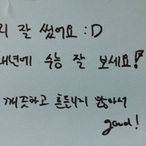 리 잘 썼어요 :D
내년에 수능 잘 보세요!
깨끗하고 흔들리지 않아서
good!